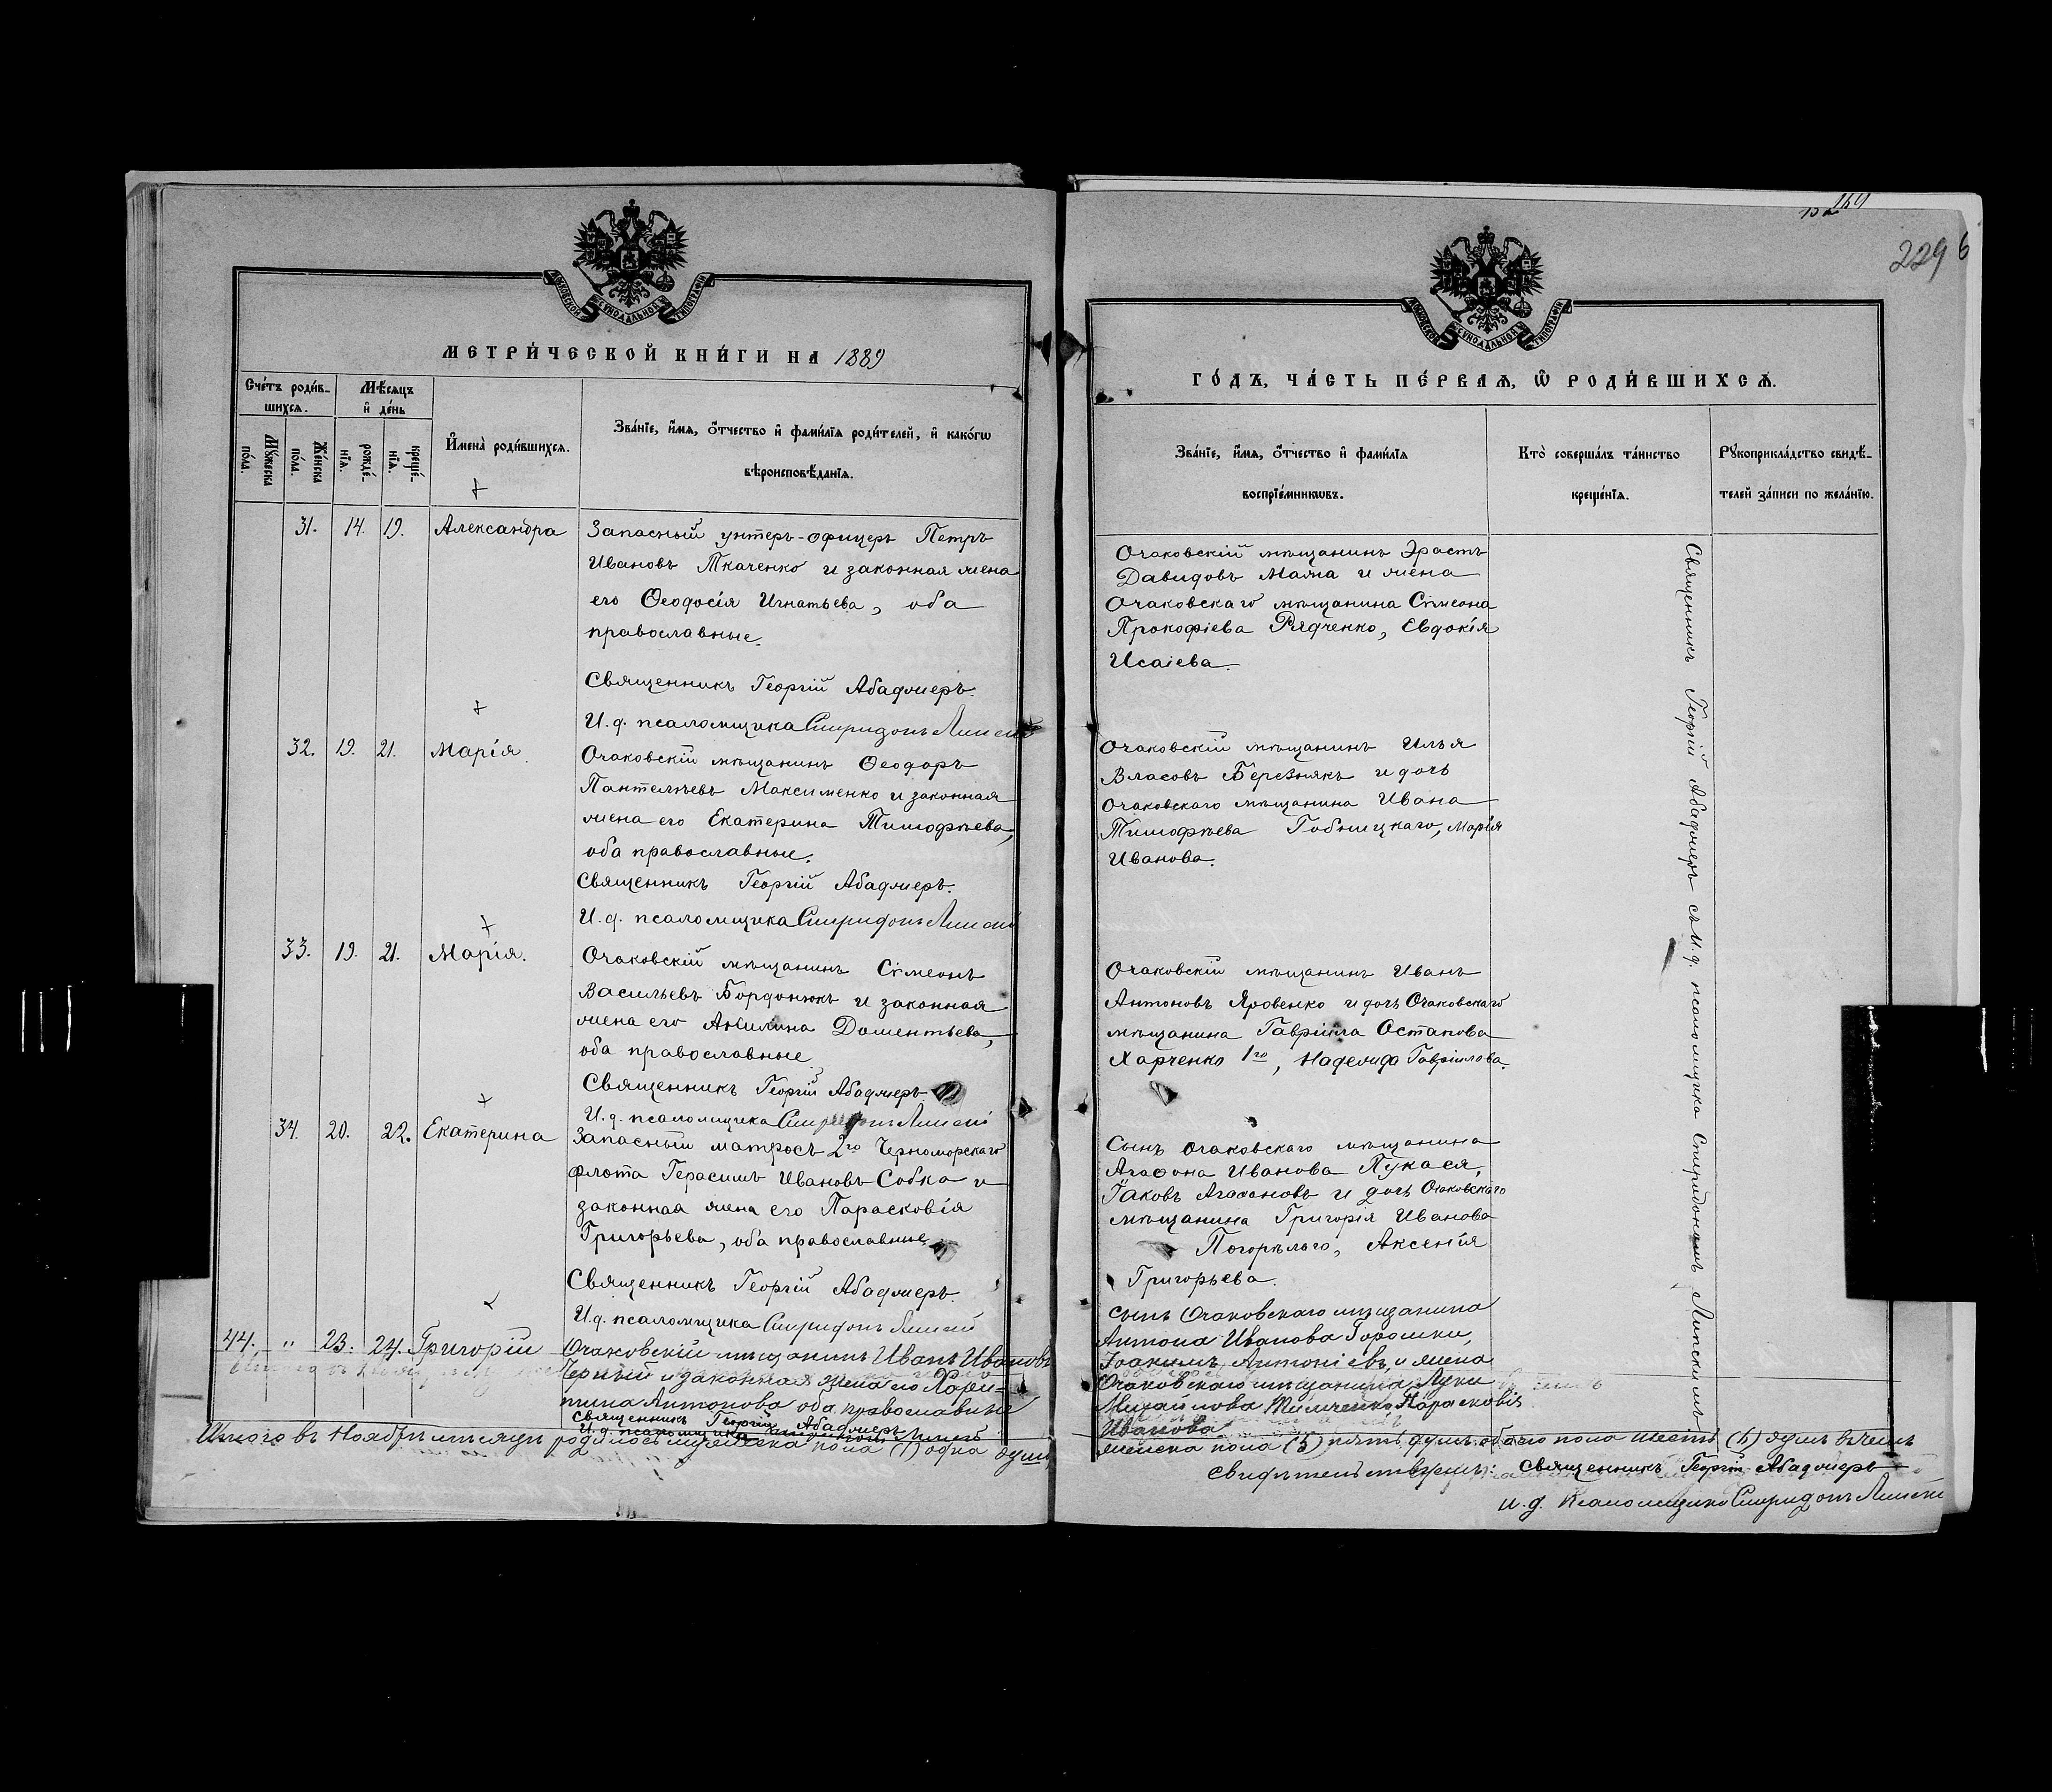 МОСКОВСКОЙ СѴНОДАЛЬНОЙ ТИПОГРАФІИ
МЕТРИ́ЧЕСКОЙ КНИ́ГИ НА 1889
Сче́тъ роди́в-
шихсѧ.
Мѣ́сѧцъ
и҆ де́нь
Мꙋ́жеска
по́ла.
Же́нска
по́ла.
рожде́-
нїѧ.
креще́-
нїѧ.
И҆мена̀ роди́вшихсѧ.
Зва́нїе, и҆́мѧ, ѻ҆́тчество и҆ фами́лїѧ роди́телей, и҆ како́гѡ
вѣроисповѣ́данїѧ.
31. 14. 19. Александра
Запасный унтеръ-офицеръ Петръ
Ивановъ Ткаченко и законная жена
его Ѳеодосія Игнатьева, оба
православные.
Священникъ Георгій Абаджеръ.
И.д. псаломщика Спиридонъ
32. 19. 21. Марія.
Очаковскій мѣщанинъ Ѳеодоръ
Пантелѣевъ Максименко и законная
жена его Екатерина Тимофѣева,
оба православные.
Священникъ Георгій Абаджеръ.
И.д. псаломщика Спиридонъ
33. 19. 21. Марія.
Очаковскій мѣщанинъ Сѵмеонъ
Васильевъ Бордонюкъ и законная
жена его Акилина Доментьева,
оба православные
Священникъ Георгій Абаджеръ
И.д. псаломщика
34. 20. 22. Екатерина
Запасный матросъ 2го Черноморскаго
флота Герасимъ Ивановъ Собка и
законная жена его Парасковія
Григорьева, оба православные
Священникъ Георгій Абаджеръ.
И.д. псаломщика Спиридонъ
44. " 23. 24. Григорій
Очаковскій мѣщанинъ Иванъ Ивановъ
Черный и законная жена его Хари-
тина Антонова оба православные
Священникъ Георгій Абаджеръ
И.д. псаломщика
Итого въ Ноябрѣ мѣсяцѣ родилось мужеска пола (1) одна душа
152
229
ГО́ДЪ, ЧА́СТЬ ПЕ́РВАѦ, Ѡ҆ РОДИ́ВШИХСѦ.
Зва́нїе, и҆́мѧ, ѻ҆́тчество и҆ фами́лїѧ
воспрїе́мникѡвъ.
Кто̀ соверша́лъ та́инство
креще́нїѧ.
Рꙋкоприкла́дство свидѣ́-
телей за́писи по жела́нїю.
Очаковскій мѣщанинъ Эрастъ
Давидовъ Мажа и жена
Очаковскаго мѣщанина Сѵмеона
Прокофіева Рядченко, Евдокія
Исаіева.
Очаковскій мѣщанинъ Илья
Власовъ Березнякъ и дочь
Очаковскаго мѣщанина Ивана
Тимофѣева Гобницкаго, Марія
Иванова.
Очаковскій мѣщанинъ Иванъ
Антоновъ Яровенко и дочь Очаковскаго
мѣщанина Гавріила Остапова
Харченко 1го, Надежда Гавріилова.
Сынъ Очаковскаго мѣщанина
Агаѳона Иванова Пукася,
Іаковъ Агаѳоновъ и дочь Очаковскаго
мѣщанина Григорія Иванова
Погорѣлаго, Аксенія
Григорьева.
Сынъ Очаковскаго мѣщанина
Антона Иванова Горошки,
Іоакимъ Антоніевъ, и жена
Очаковскаго мѣщанина Луки
Михайлова Тимченко Парасковія
Иванова
Священникъ Георгій Абаджеръ съ И.д. псаломщика Спиридономъ Липскимъ
женска пола (5) пять душъ обоего пола шесть (6) душъ въ чемъ
свидѣтельствуемъ: Священникъ Георгій Абаджеръ
И.д. псаломщика Спиридонъ